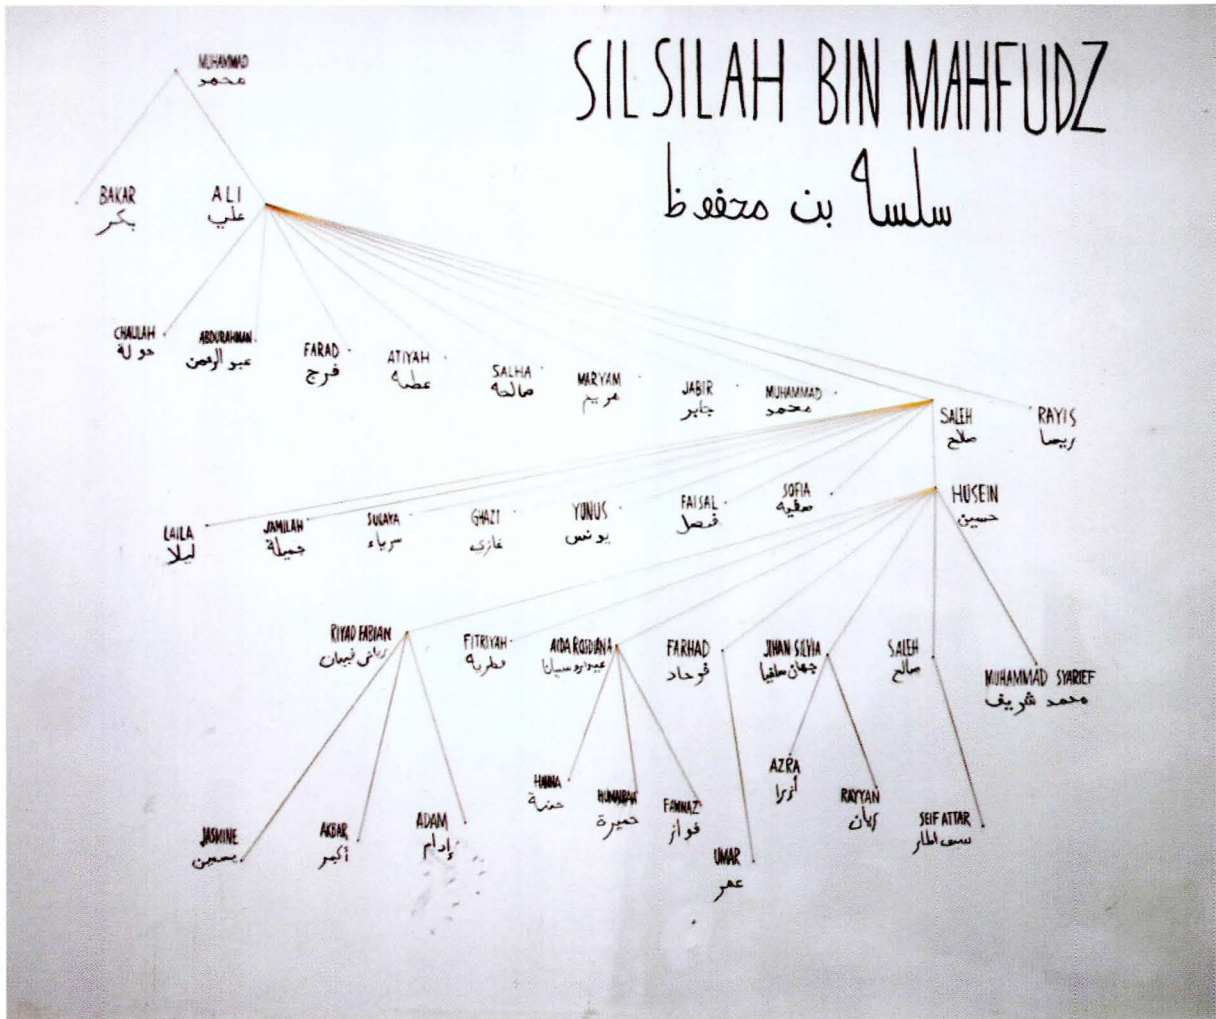 SILSILAH BIN MAHFUDZ
سلسا بن محفوظ
MUHAMMAD
محمد
BAKAR
بكر
ALI
علي
CHAULAH
ABDURAHMAN
FARAD
فرج
ATIYAH
عطيه
SALHA
صالحه
MARYAM
مريم
JABIR
جابر
MUHAMMAD
محمد
SALEH
صلاح
RAYIS
ريسا
LAILA
ليلا
JAMILAH
جميلة
SURAYA
سرياء
GHAZI
غازي
YUNUS
يونس
FAISAL
فيصل
SOFIA
صفيه
HUSEIN
حسين
RIYAD FABIAN
FITRIYAH
فطريه
AIDA ROSDIANA
FARHAD
فرحاد
JIHAN SILVIA
SALEH
صالح
MUHAMMAD SYARIEF
محمد شريف
JASMINE
AKBAR
أكبر
ADAM
إدام
HANNA
HUMAIRAH
حميرة
FAWWAZ
فواز
UMAR
عمر
AZRA
أزرا
RAYYAN
ريان
SEIF ATTAR